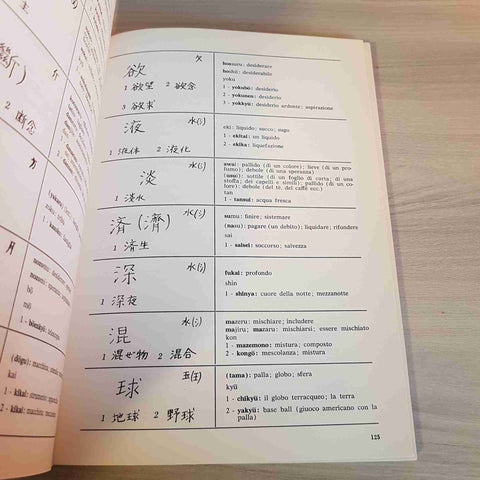 主
斷)
2 断念
介
月
欠
欲
1 欲望 2 欲念
3 欲求
hossuru: desiderare
hoshii: desiderabile
yoku
1 - yokubō: desiderio
2 - yokunen: desiderio
3 - yokkyū: desiderio ardente; aspirazione
水(氵)
液
1 液体 2 液化
eki: liquido; succo; sugo
1 - ekitai: un liquido
2 - ekika: liquefazione
水(氵)
淡
1 淡水
awai: pallido (di un colore); lieve (di un pro-
fumo); debole (di una speranza)
(usui): sottile (di un foglio di carta; di una
stoffa; dei capelli e simili); pallido (di un co-
lore); debole (del tè, del caffè ecc.)
tan
1 - tansui: acqua fresca
水(氵)
済 (濟)
1 済生
sumu: finire; sistemare
(nasu): pagare (un debito); liquidare; rifondere
sai
1 - saisei: soccorso; salvezza
水(氵)
深
1 深夜
fukai: profondo
shin
1 - shinya: cuore della notte; mezzanotte
水(氵)
混
1 混ぜ物 2 混合
mazeru: mischiare; includere
majiru; mazaru: mischiarsi; essere mischiato
kon
1 - mazemono: mistura; composto
2 - kongō: mescolanza; mistura
玉(王)
球
1 地球 2 野球
(tama): palla; globo; sfera
kyū
1 - chikyū: il globo terracqueo; la terra
2 - yakyū: base ball (giuoco americano con la
palla)
125